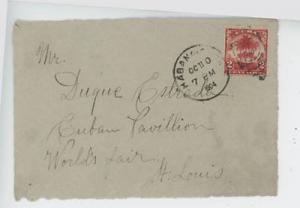 Mr.
Duque Estrada
Cuban Pavillion
World's fair
St. Louis
HABANA
OCT 10
7 PM
1904
2